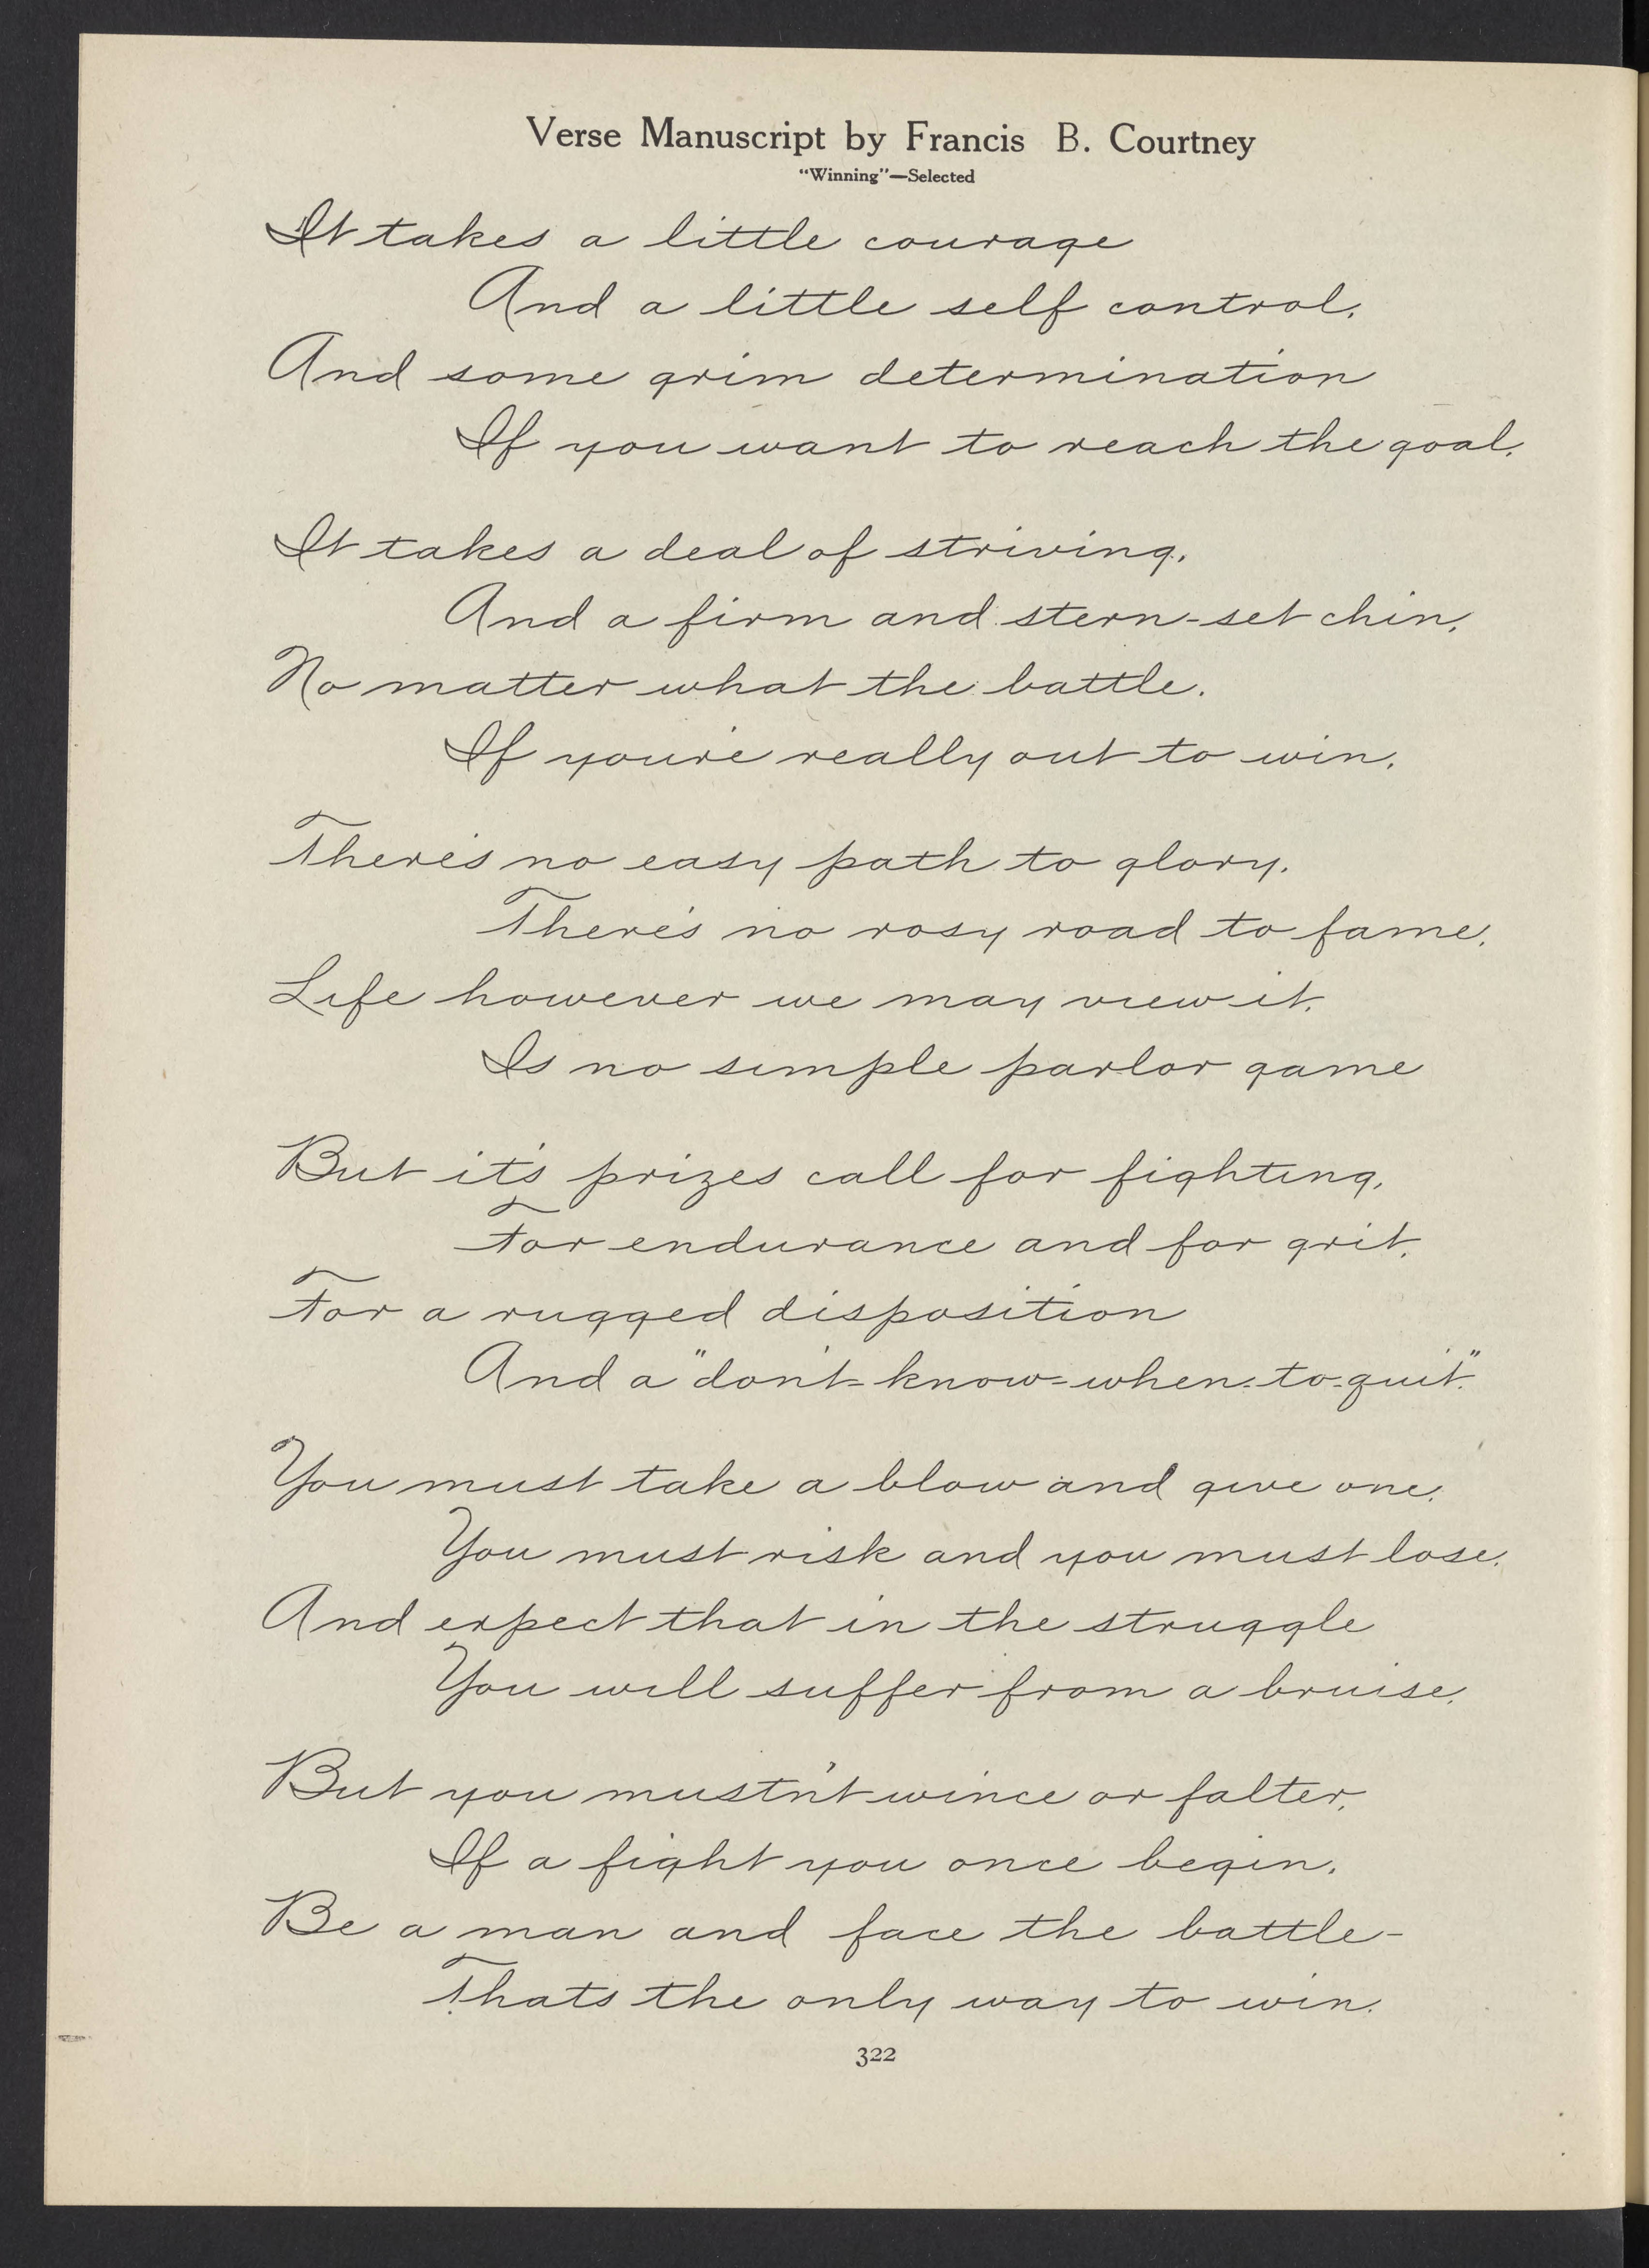 Verse Manuscript by Francis B. Courtney
"Winning"—Selected
It takes a little courage
And a little self control,
And some grim determination
If you want to reach the goal.
It takes a deal of striving,
And a firm and stern-set chin,
No matter what the battle.
If you're really out to win.
There's no easy path to glory.
There's no rosy road to fame.
Life however we may view it,
Is no simple parlor game
But it's prizes call for fighting,
For endurance and for grit,
For a rugged disposition
And a "don't-know-when-to-quit."
You must take a blow and give one,
You must risk and you must lose,
And expect that in the struggle
You will suffer from a bruise.
But you mustn't wince or falter,
If a fight you once begin.
Be a man and face the battle-
Thats the only way to win.
322